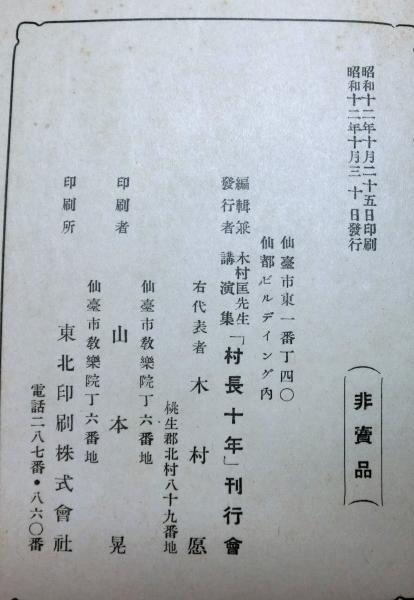 昭和十二年十月二十五日印刷
昭和十二年十月三十日發行
(非賣品)
仙臺市東一番丁四〇
仙都ビルデイング內
編輯兼發行者 木村匡先生講演集「村長十年」刊行會
右代表者 木村愿
桃生郡北村八十九番地
仙臺市敎樂院丁六番地
印刷者 山本晃
仙臺市敎樂院丁六番地
印刷所 東北印刷株式會社
電話二八七番・八六〇番